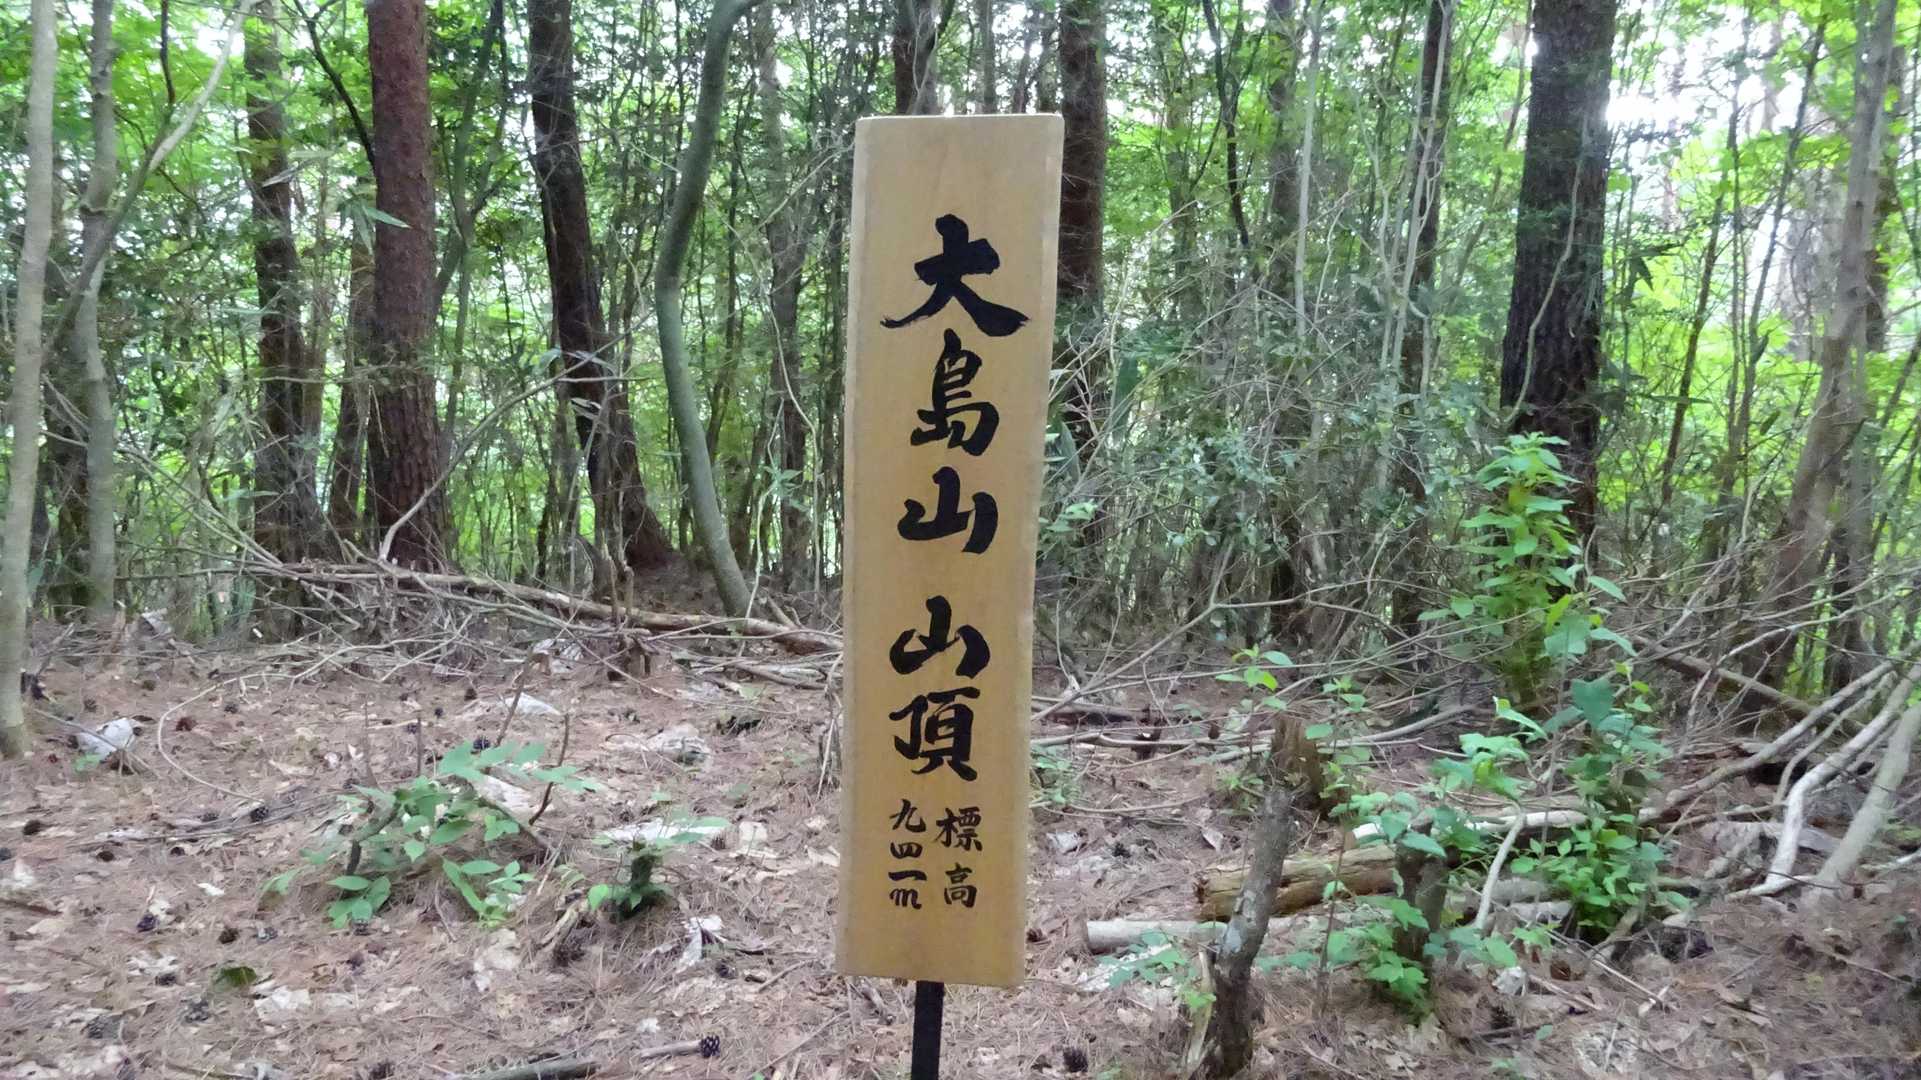 大島山 山頂
標高
九四一m